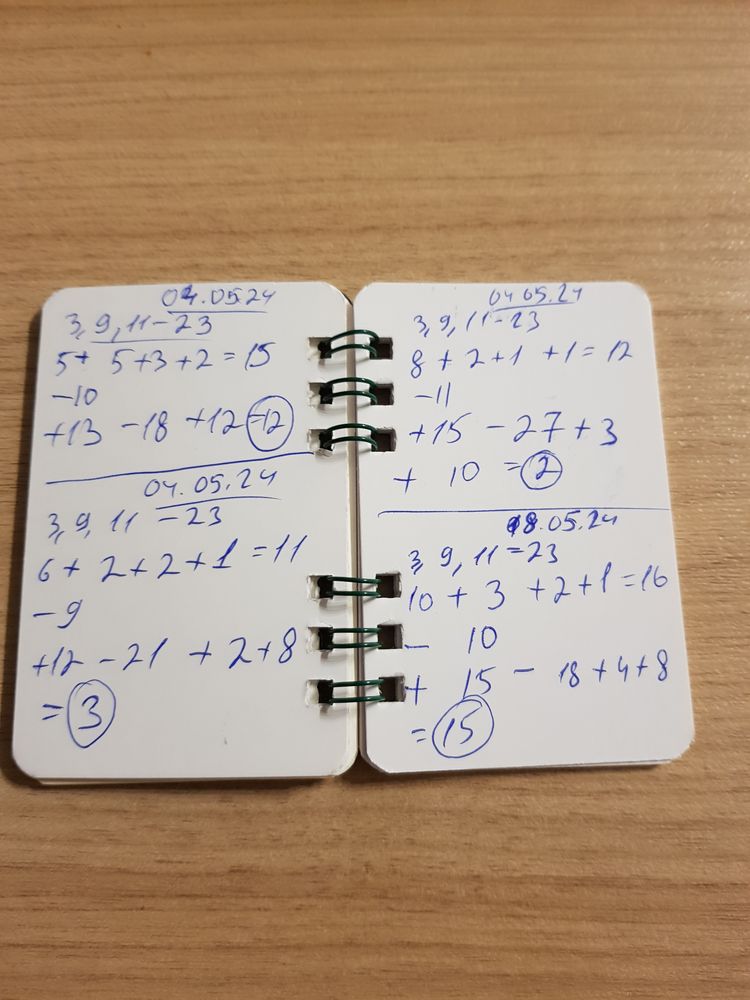 04.05.24
3, 9, 11 - 23
5 + 5 + 3 + 2 = 15
- 10
+ 13 - 18 + 12 = 12
04.05.24
3, 9, 11 - 23
6 + 2 + 2 + 1 = 11
- 9
+ 12 - 21 + 2 + 8
= 3
04 05.24
3, 9, 11 - 23
8 + 2 + 1 + 1 = 12
- 11
+ 15 - 27 + 3
+ 10 = 2
18.05.24
3, 9, 11 - 23
10 + 3 + 2 + 1 = 16
- 10
+ 15 - 18 + 4 + 8
= 15